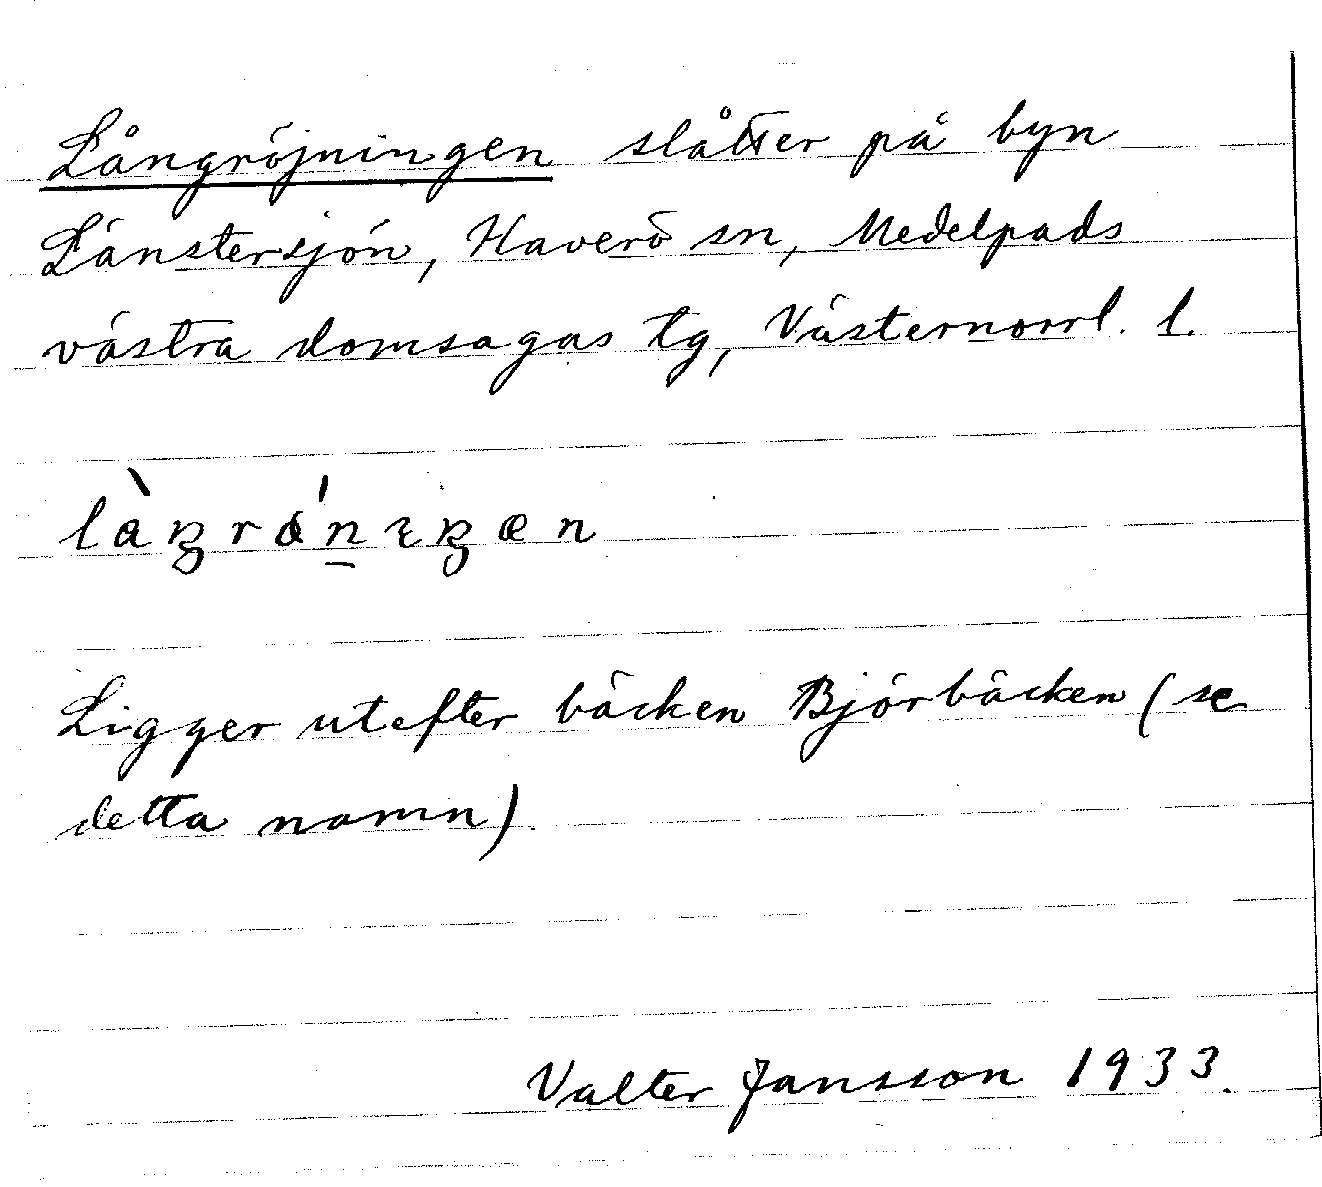 Långröjningen slåtter på byn
Länstersjön, Haverö sn, Medelpads
västra domsagas tg, Västernorrl. l.
Ligger utefter bäcken Björbäcken (se
detta namn)
Valter Jansson 1933.